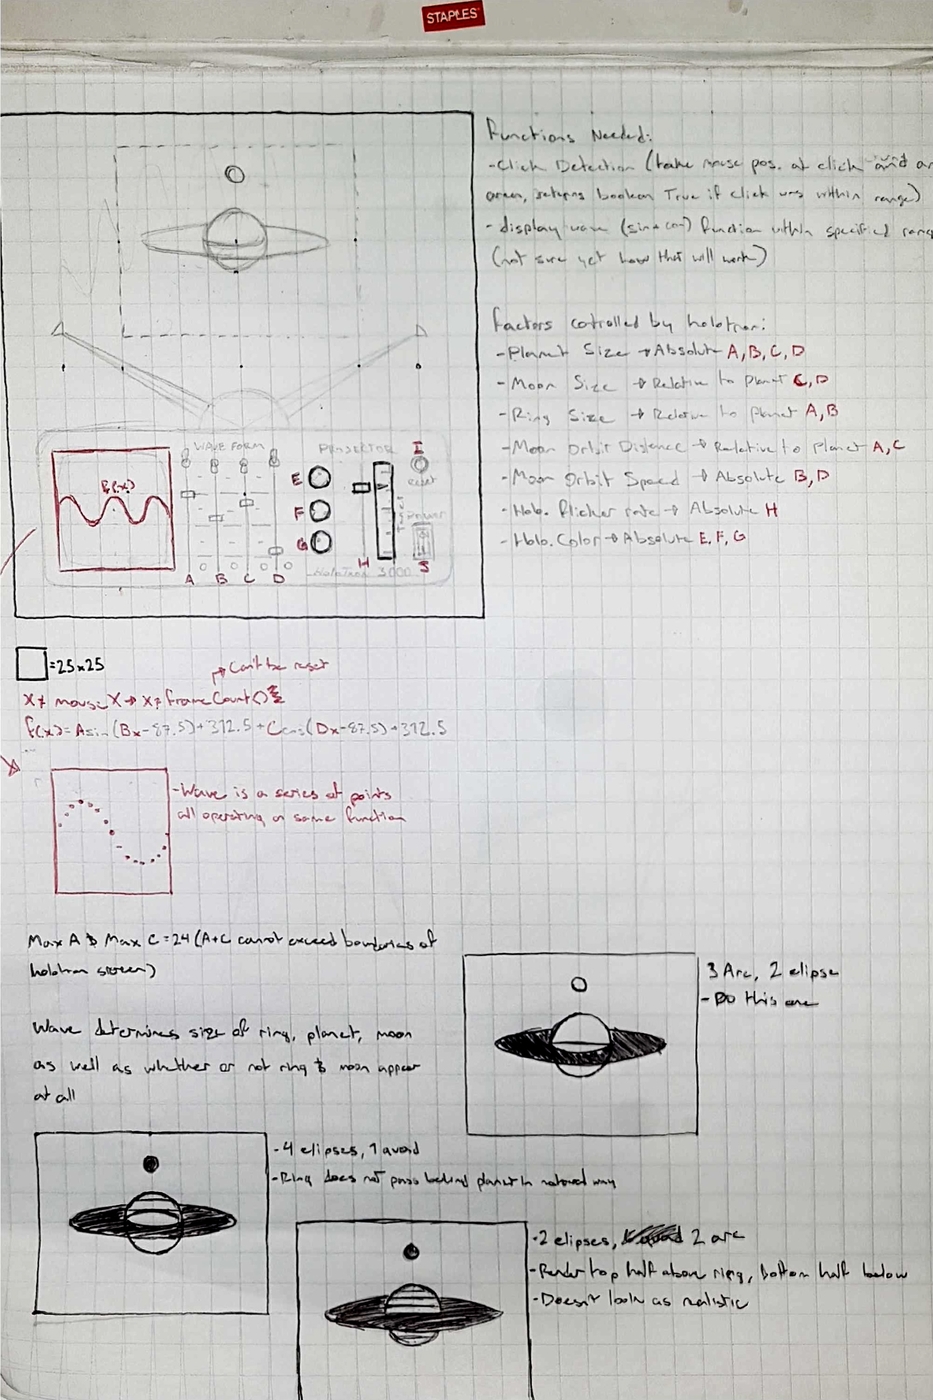 STAPLES
Functions Needed:
- Click Detection (take mouse pos. at click and an
area, returns boolean True if click was within range)
- display wave (sin + cos) function within specified range
(not sure yet how that will work)
Factors cotrolled by holotron:
- Planet Size → Absolute A, B, C, D
- Moon Size → Relative to planet C, D
- Ring Size → Relative to planet A, B
- Moon Orbit Distance → Relative to Planet A, C
- Moon Orbit Speed → Absolute B, D
- Holo. flicker rate → Absolute H
- Holo. Color → Absolute E, F, G
WAVE FORM
PROJECTOR
I
reset
f(x)
E
F
G
Power
A B C D
H
J
Holotron 3000
= 25x25
→ Can't be reset
X ≠ mouseX → X = frameCount()
f(x) = Asin(Bx-87.5)+312.5+Ccos(Dx-87.5)+312.5
- Wave is a series of points
all operating on same function
Max A & Max C = 24 (A+C cannot exceed boundaries of
holotron screen)
Wave determines size of ring, planet, moon
as well as whether or not ring & moon appear
at all
3 Arc, 2 elipse
- Do this one
- 4 elipses, 1
- Ring does not pass behind planet in natural way
- 2 elipses, 2 arc
- Render top half above ring, bottom half below
- Doesn't look as realistic